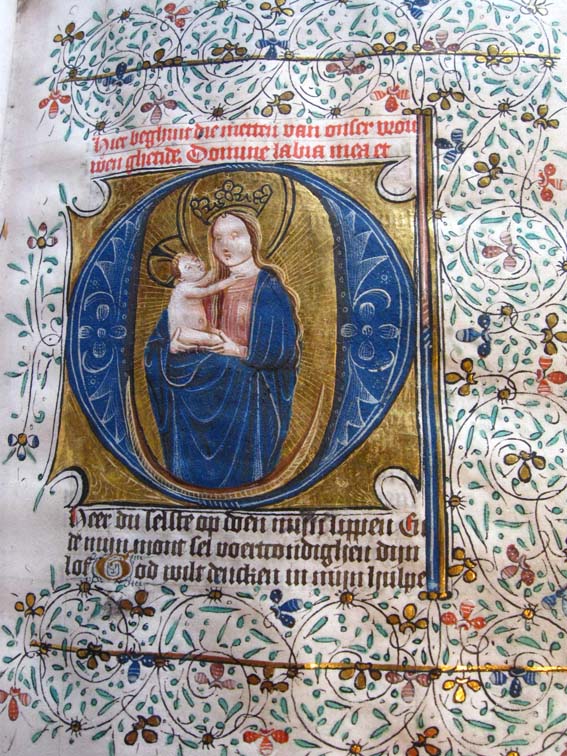 Hier beghint die metten van onser vrou
wen ghetide. Domine labia mea et
Heer du selste op doen mijn lippen En
de mijn mont sel voertcondighen dijn
lof God wilt dencken in mijn hulpe